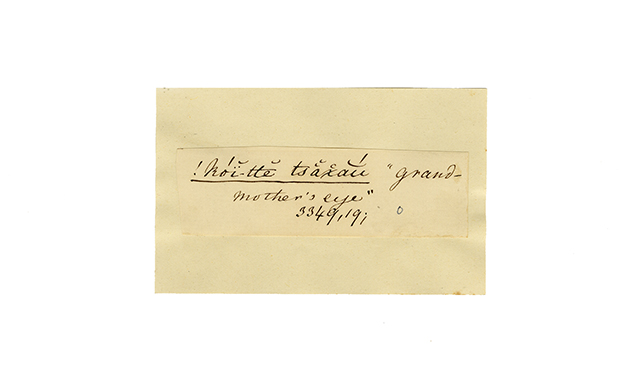 !kóï-ttĕ tsă̤xáú "grand-
mother's eye"
3349,19; 0